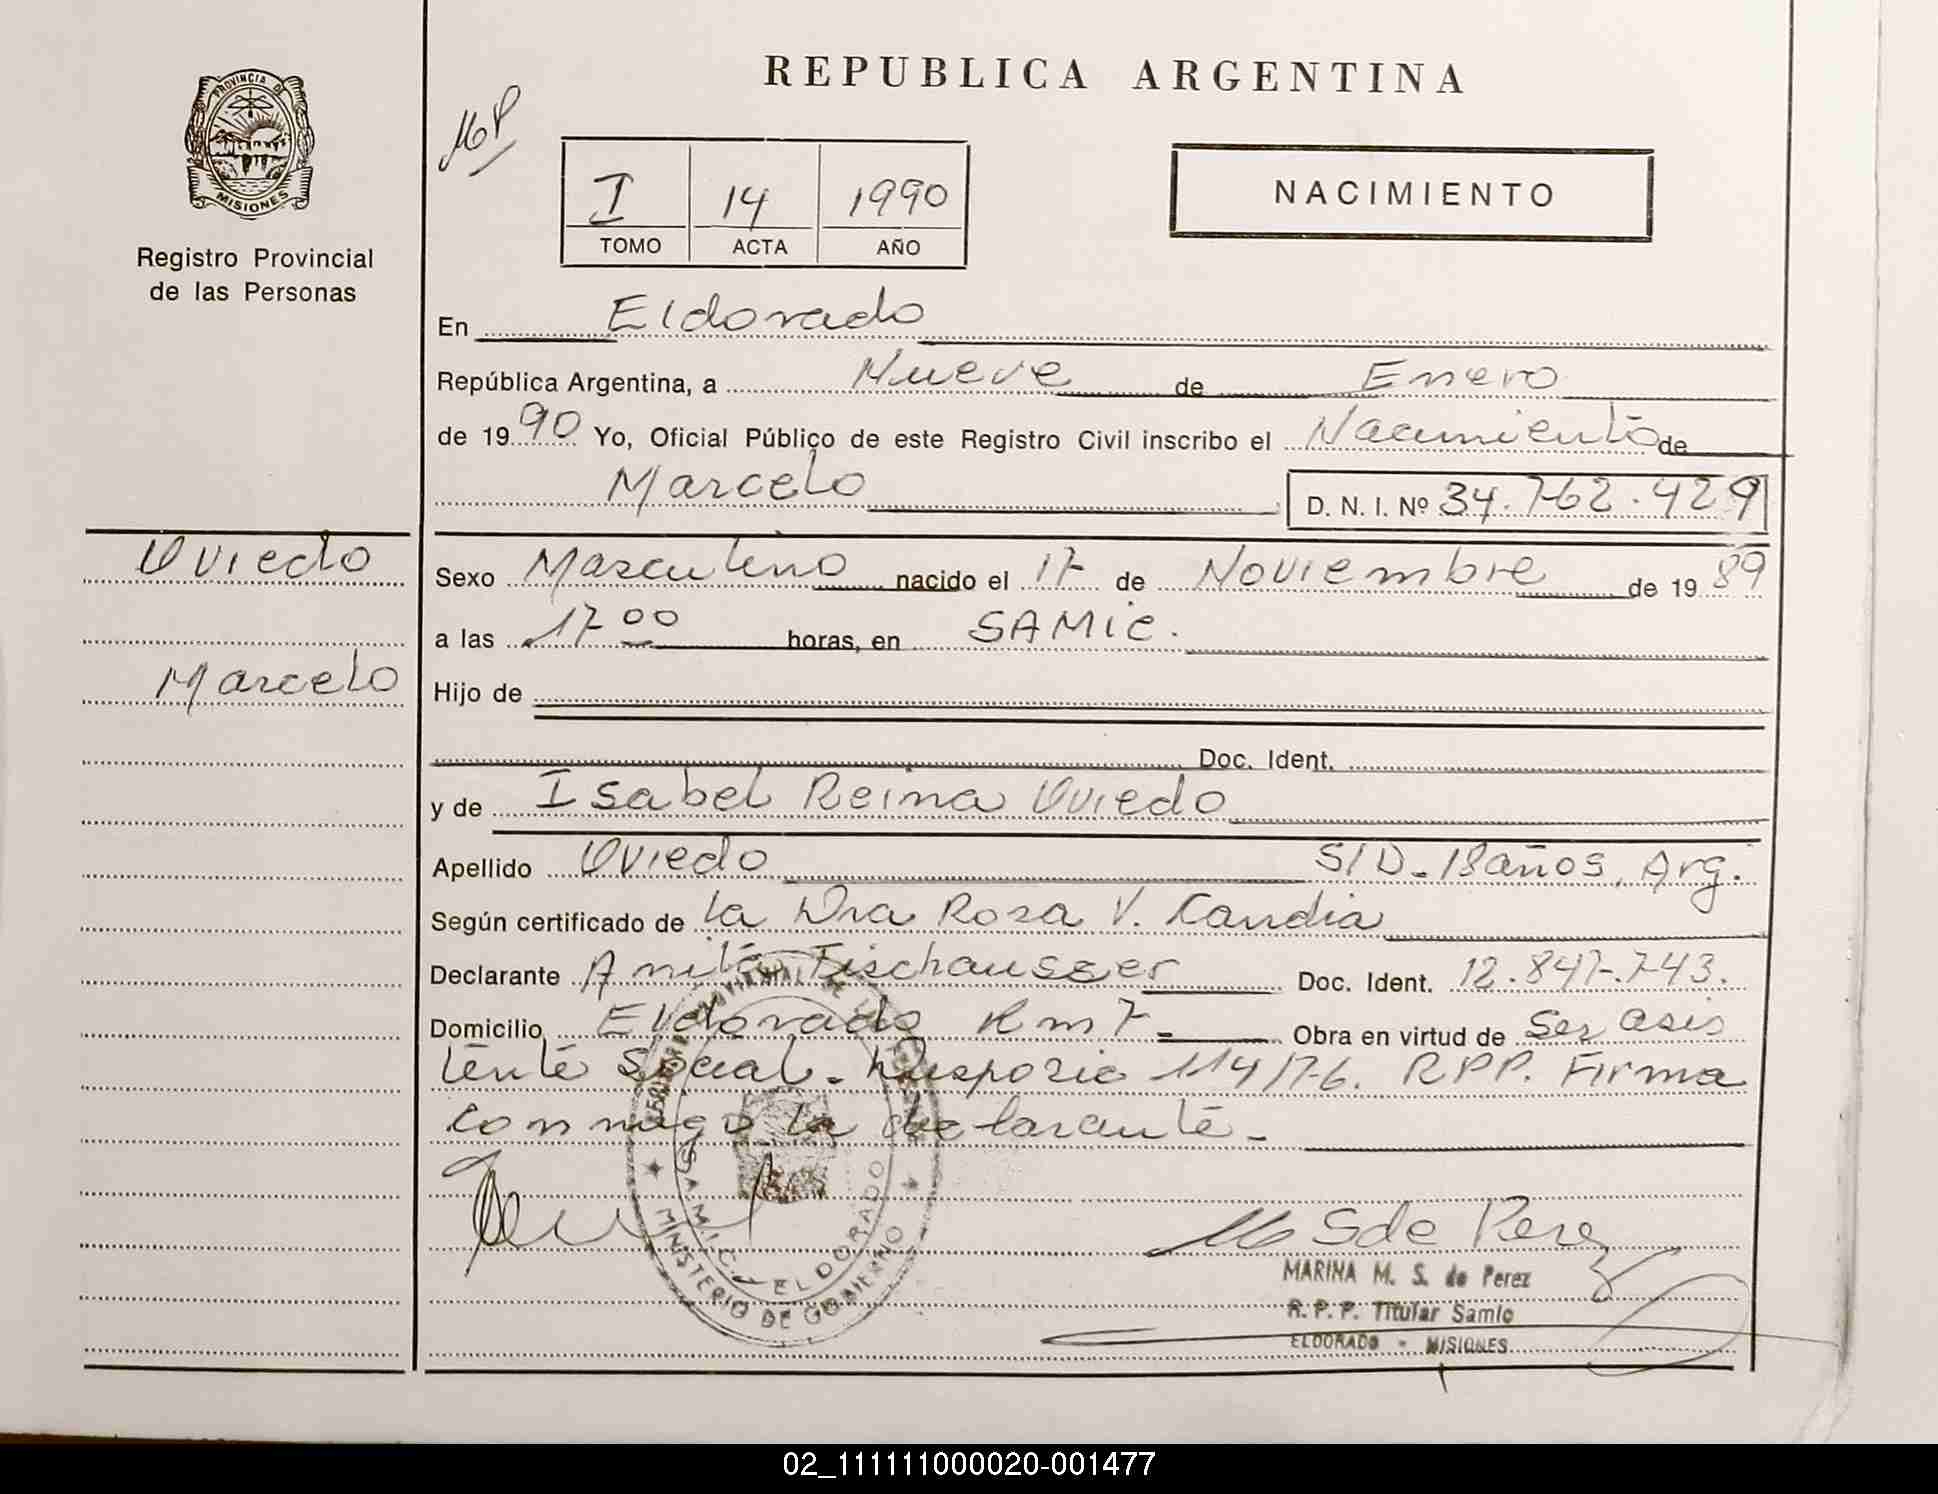 PROVINCIA DE
MISIONES
Registro Provincial
de las Personas
Oviedo
Marcelo
REPUBLICA ARGENTINA
I 14 1990
TOMO ACTA AÑO
NACIMIENTO
En Eldorado
República Argentina, a Nueve de Enero
de 1990 Yo, Oficial Público de este Registro Civil inscribo el Nacimiento de
Marcelo D. N. I. Nº 34.762.429
Sexo Masculino nacido el 17 de Noviembre de 1989
a las 17 00 horas, en SAMIC.
Hijo de
Doc. Ident.
y de Isabel Reina Oviedo
Apellido Oviedo S/D - 18 años, Arg.
Según certificado de la Dra Rosa V. Candia
Declarante Anita Fischausser Doc. Ident. 12.847.743.
Domicilio Eldorado Km 7 - Obra en virtud de Ser Asis
tente Social - 114/76. RPP. Firma
conmigo la declarante -
S.A.M.I.C. - ELDORADO
MINISTERIO DE GOBIERNO
S de Perez
MARINA M. S. de Perez
R. P. P. Titular Samic
ELDORADO - MISIONES
02_111111000020-001477